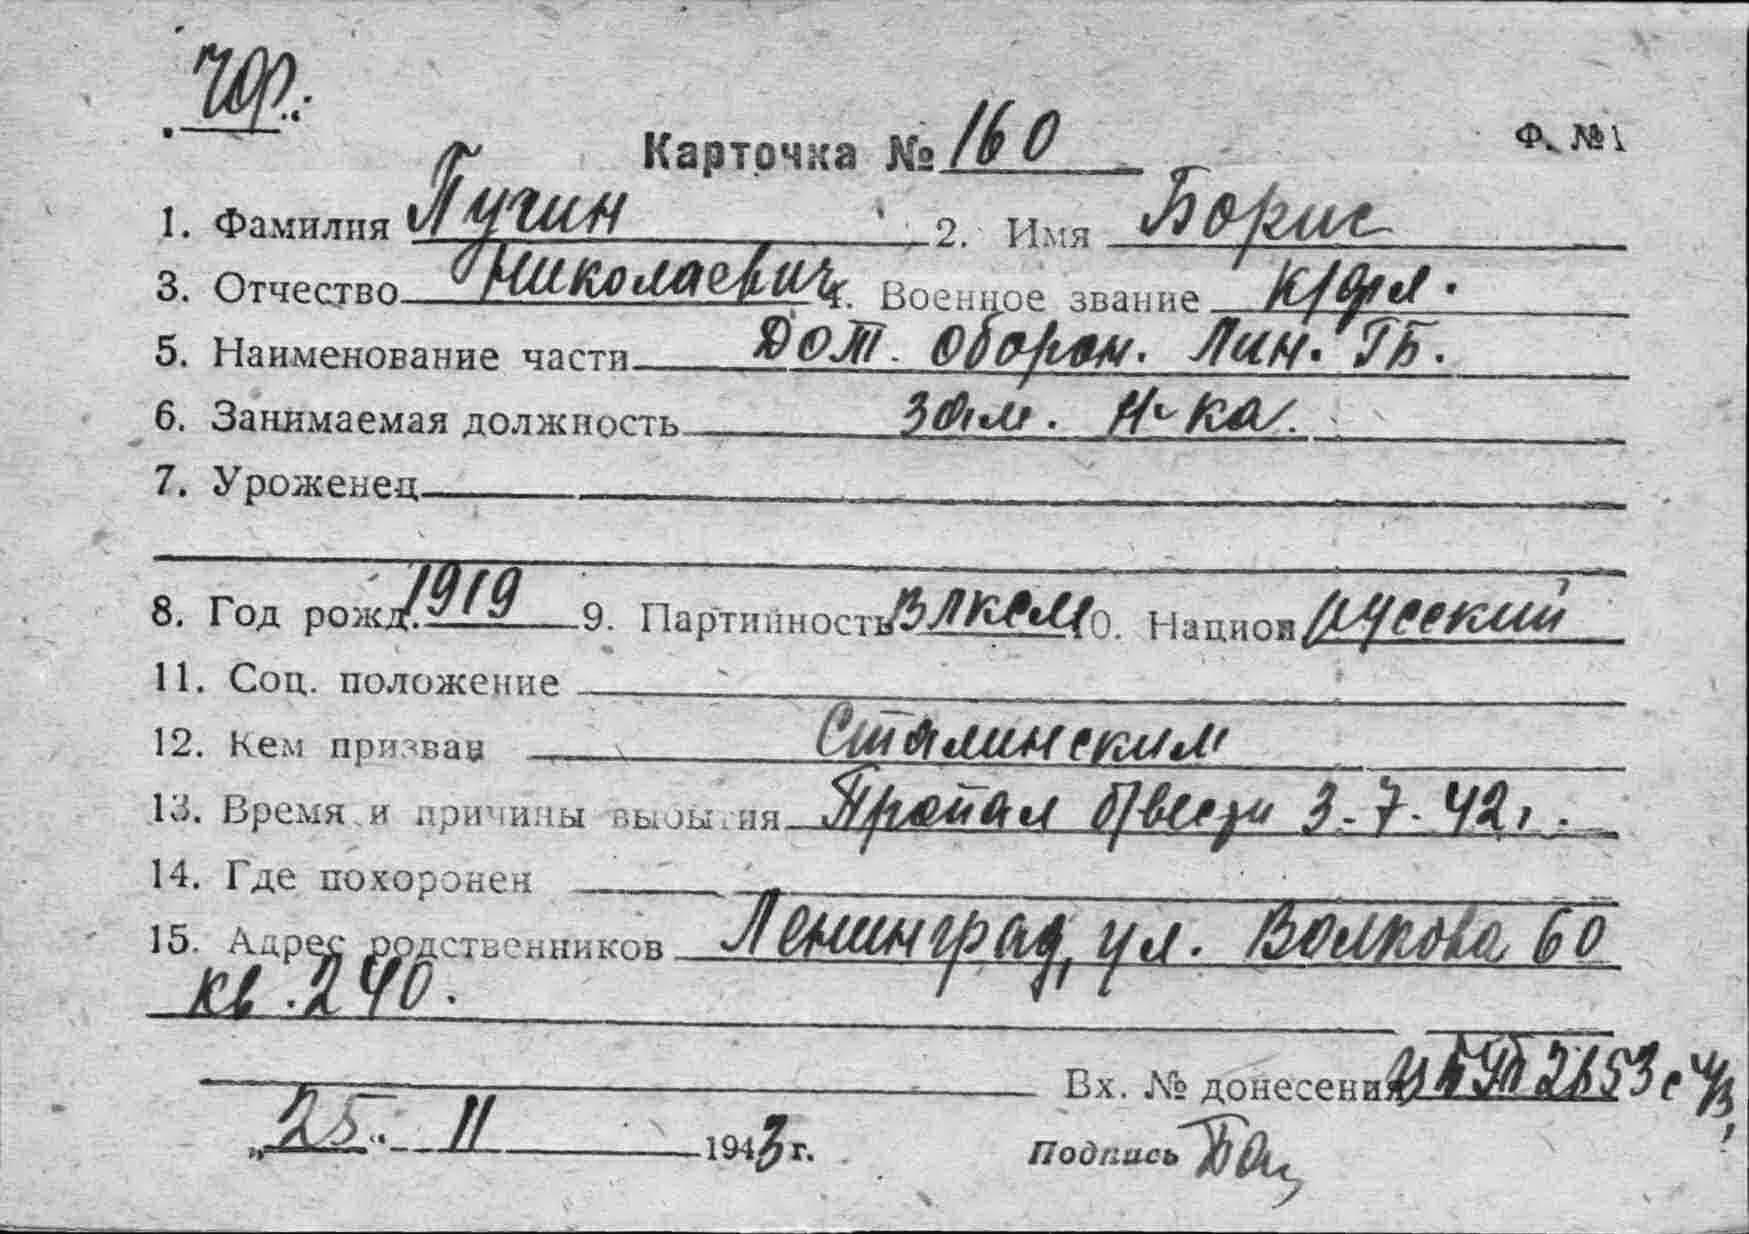 ЧФ.
Карточка № 160 Ф. №1
1. Фамилия Пучин 2. Имя Борис
3. Отчество Николаевич 4. Военное звание к/фл.
5. Наименование части Дот. оборон. Лин. ГБ.
6. Занимаемая должность зам. н-ка.
7. Уроженец
8. Год рожд. 1919 9. Партийность ВЛКСМ 10. Национ русский
11. Соц. положение
12. Кем призван Сталинским
13. Время и причины выбытия Пропал б/вести 3-7-42г.
14. Где похоронен
15. Адрес родственников Ленинград, ул. Волкова 60
кв. 240.
Вх. № донесения 2653 с
„25" II 1943 г. Подпись